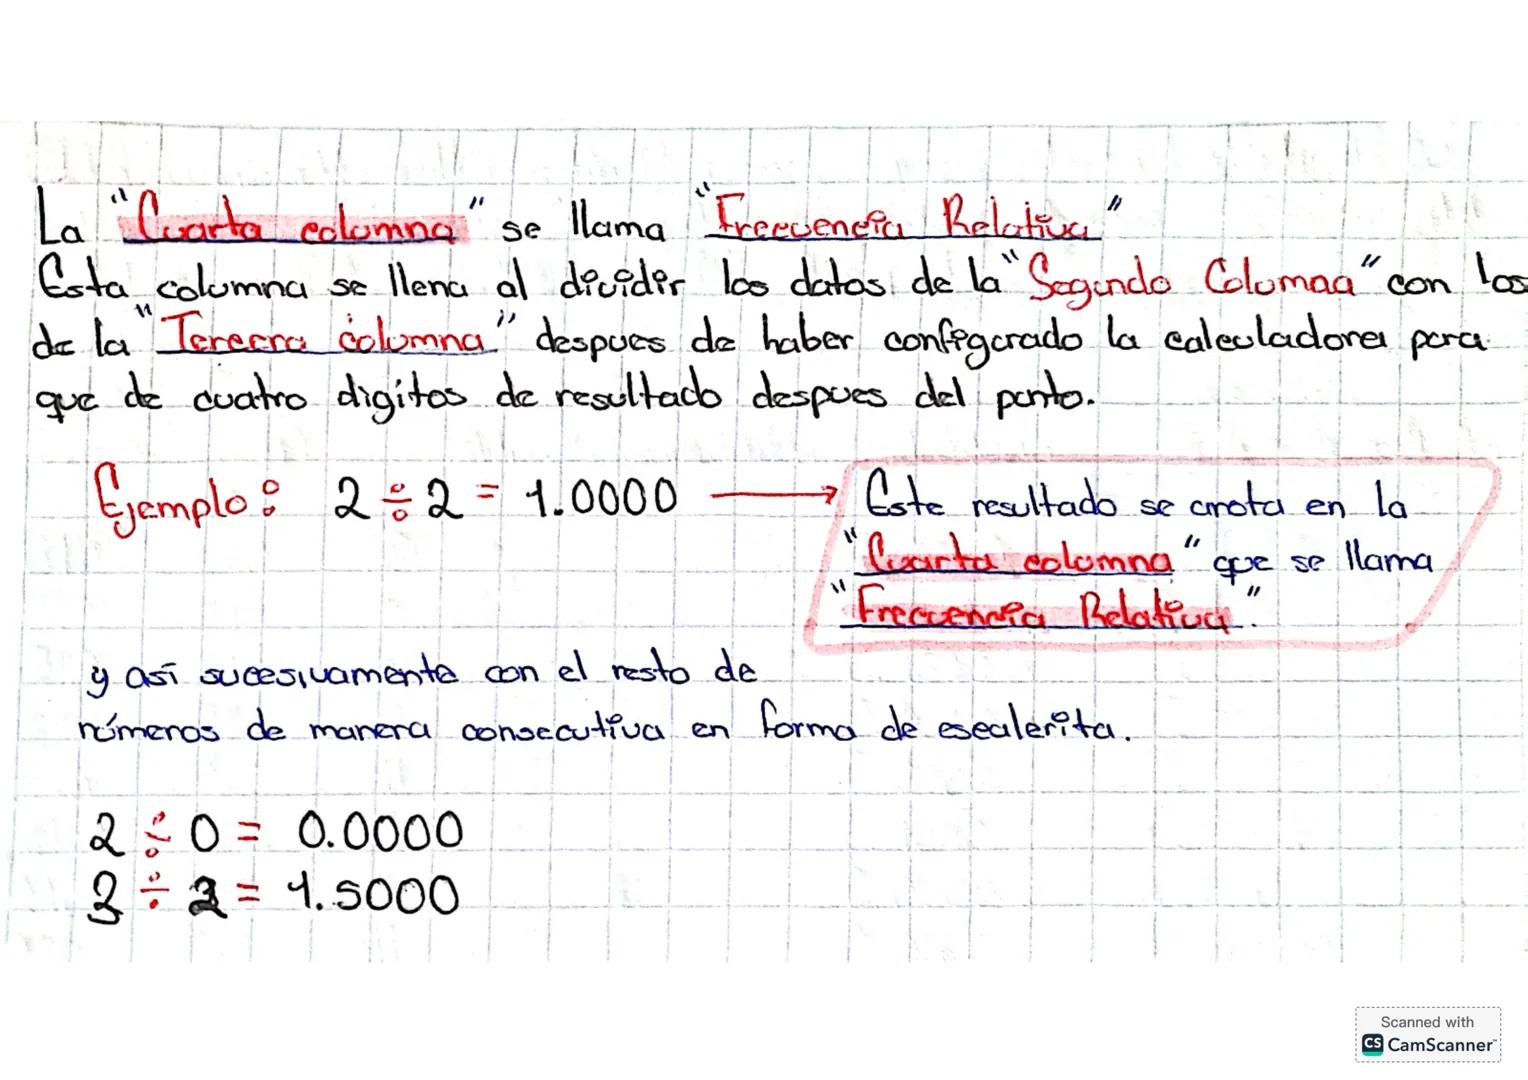 La "Cuarta columna" se llama "Frecuencia Relativa"
Esta columna se llena al dividir los datos de la "Segunda Columna" con los
de la "Tercera columna" despues de haber configurado la calculadora para
que de cuatro digitos de resultado despues del punto.
Ejemplo: 2 ÷ 2 = 1.0000 → Este resultado se anota en la
"Cuarta columna" que se llama
"Frecuencia Relativa".
y así sucesivamente con el resto de
números de manera consecutiva en forma de escalerita.
2 ÷ 0 = 0.0000
3 ÷ 2 = 1.5000
Scanned with
CS CamScanner